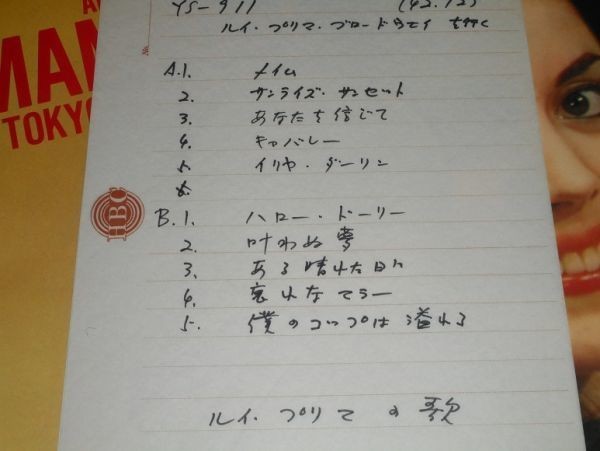 YS-911 (42.12)
ルイ・プリマ・ブロードウェイを行く
A.1. メイム
2. サンライズ・サンセット
3. あなたを信じて
4. キャバレー
5. イリヤ・ダーリン
6.
HBC
B.1. ハロー・ドーリー
2. 叶わぬ夢
3. ある晴れた日に
4. 哀れなマラー
5. 僕のコップは溢れる
ルイ・プリマの歌
MAN
TOKYO